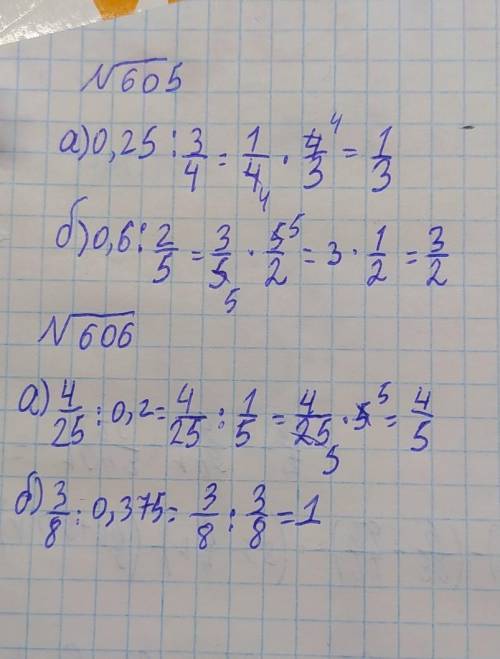 №605
а) 0,25 : 3/4 = 1/4 4 · 4/3 4 = 1/3
б) 0,6 : 2/5 = 3/5 5 · 5/2 5 = 3 · 1/2 = 3/2
№606
а) 4/25 : 0,2 = 4/25 : 1/5 = 4/25 5 · 5 5 = 4/5
б) 3/8 : 0,375 = 3/8 : 3/8 = 1